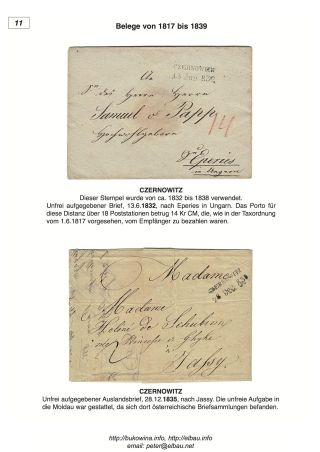 11
Belege von 1817 bis 1839
An
CZERNOWICZ
Des Herrn Herrn
Samuel v Papp
Hochwohlgeboren
14
Eperies
in Ungarn
CZERNOWITZ
Dieser Stempel wurde von ca. 1832 bis 1838 verwendet.
Unfrei aufgegebener Brief, 13.6.1832, nach Eperies in Ungarn. Das Porto für
diese Distanz über 18 Poststationen betrug 14 Kr CM, die, wie in der Taxordnung
vom 1.6.1817 vorgesehen, vom Empfänger zu bezahlen waren.
Madame
Madame
Helène de
née Princesse
Jassy.
CZERNOWITZ
Unfrei aufgegebener Auslandsbrief, 28.12.1835, nach Jassy. Die unfreie Aufgabe in
die Moldau war gestattet, da sich dort österreichische Briefsammlungen befanden.
http://bukowina.info, http://elbau.info
email: peter@elbau.net